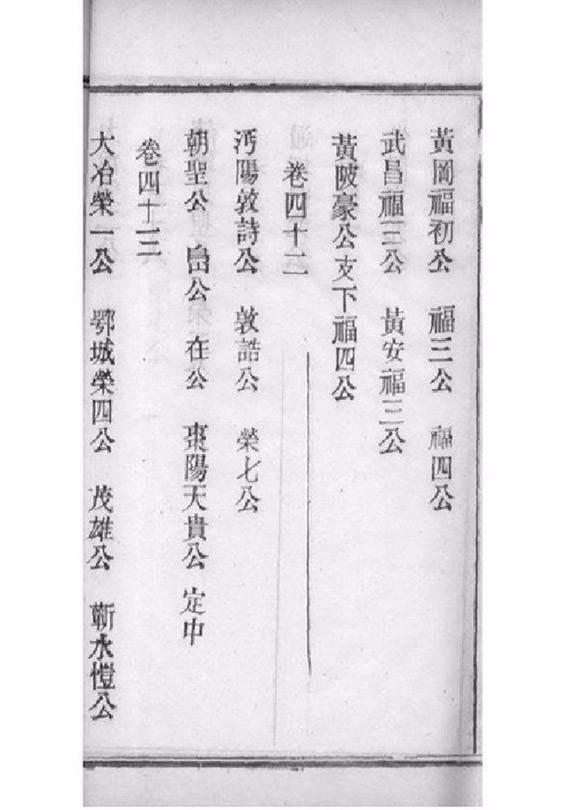 黃岡福初公　福三公　福四公
武昌福三公　黃安福三公
黃陂豪公支下福四公
卷四十二
沔陽敦詩公　敦誥公　榮七公
朝聖公　岊公　在公　棗陽天貴公　定中
卷四十三
大冶榮一公　鄂城榮四公　茂雄公　蘄水愷公